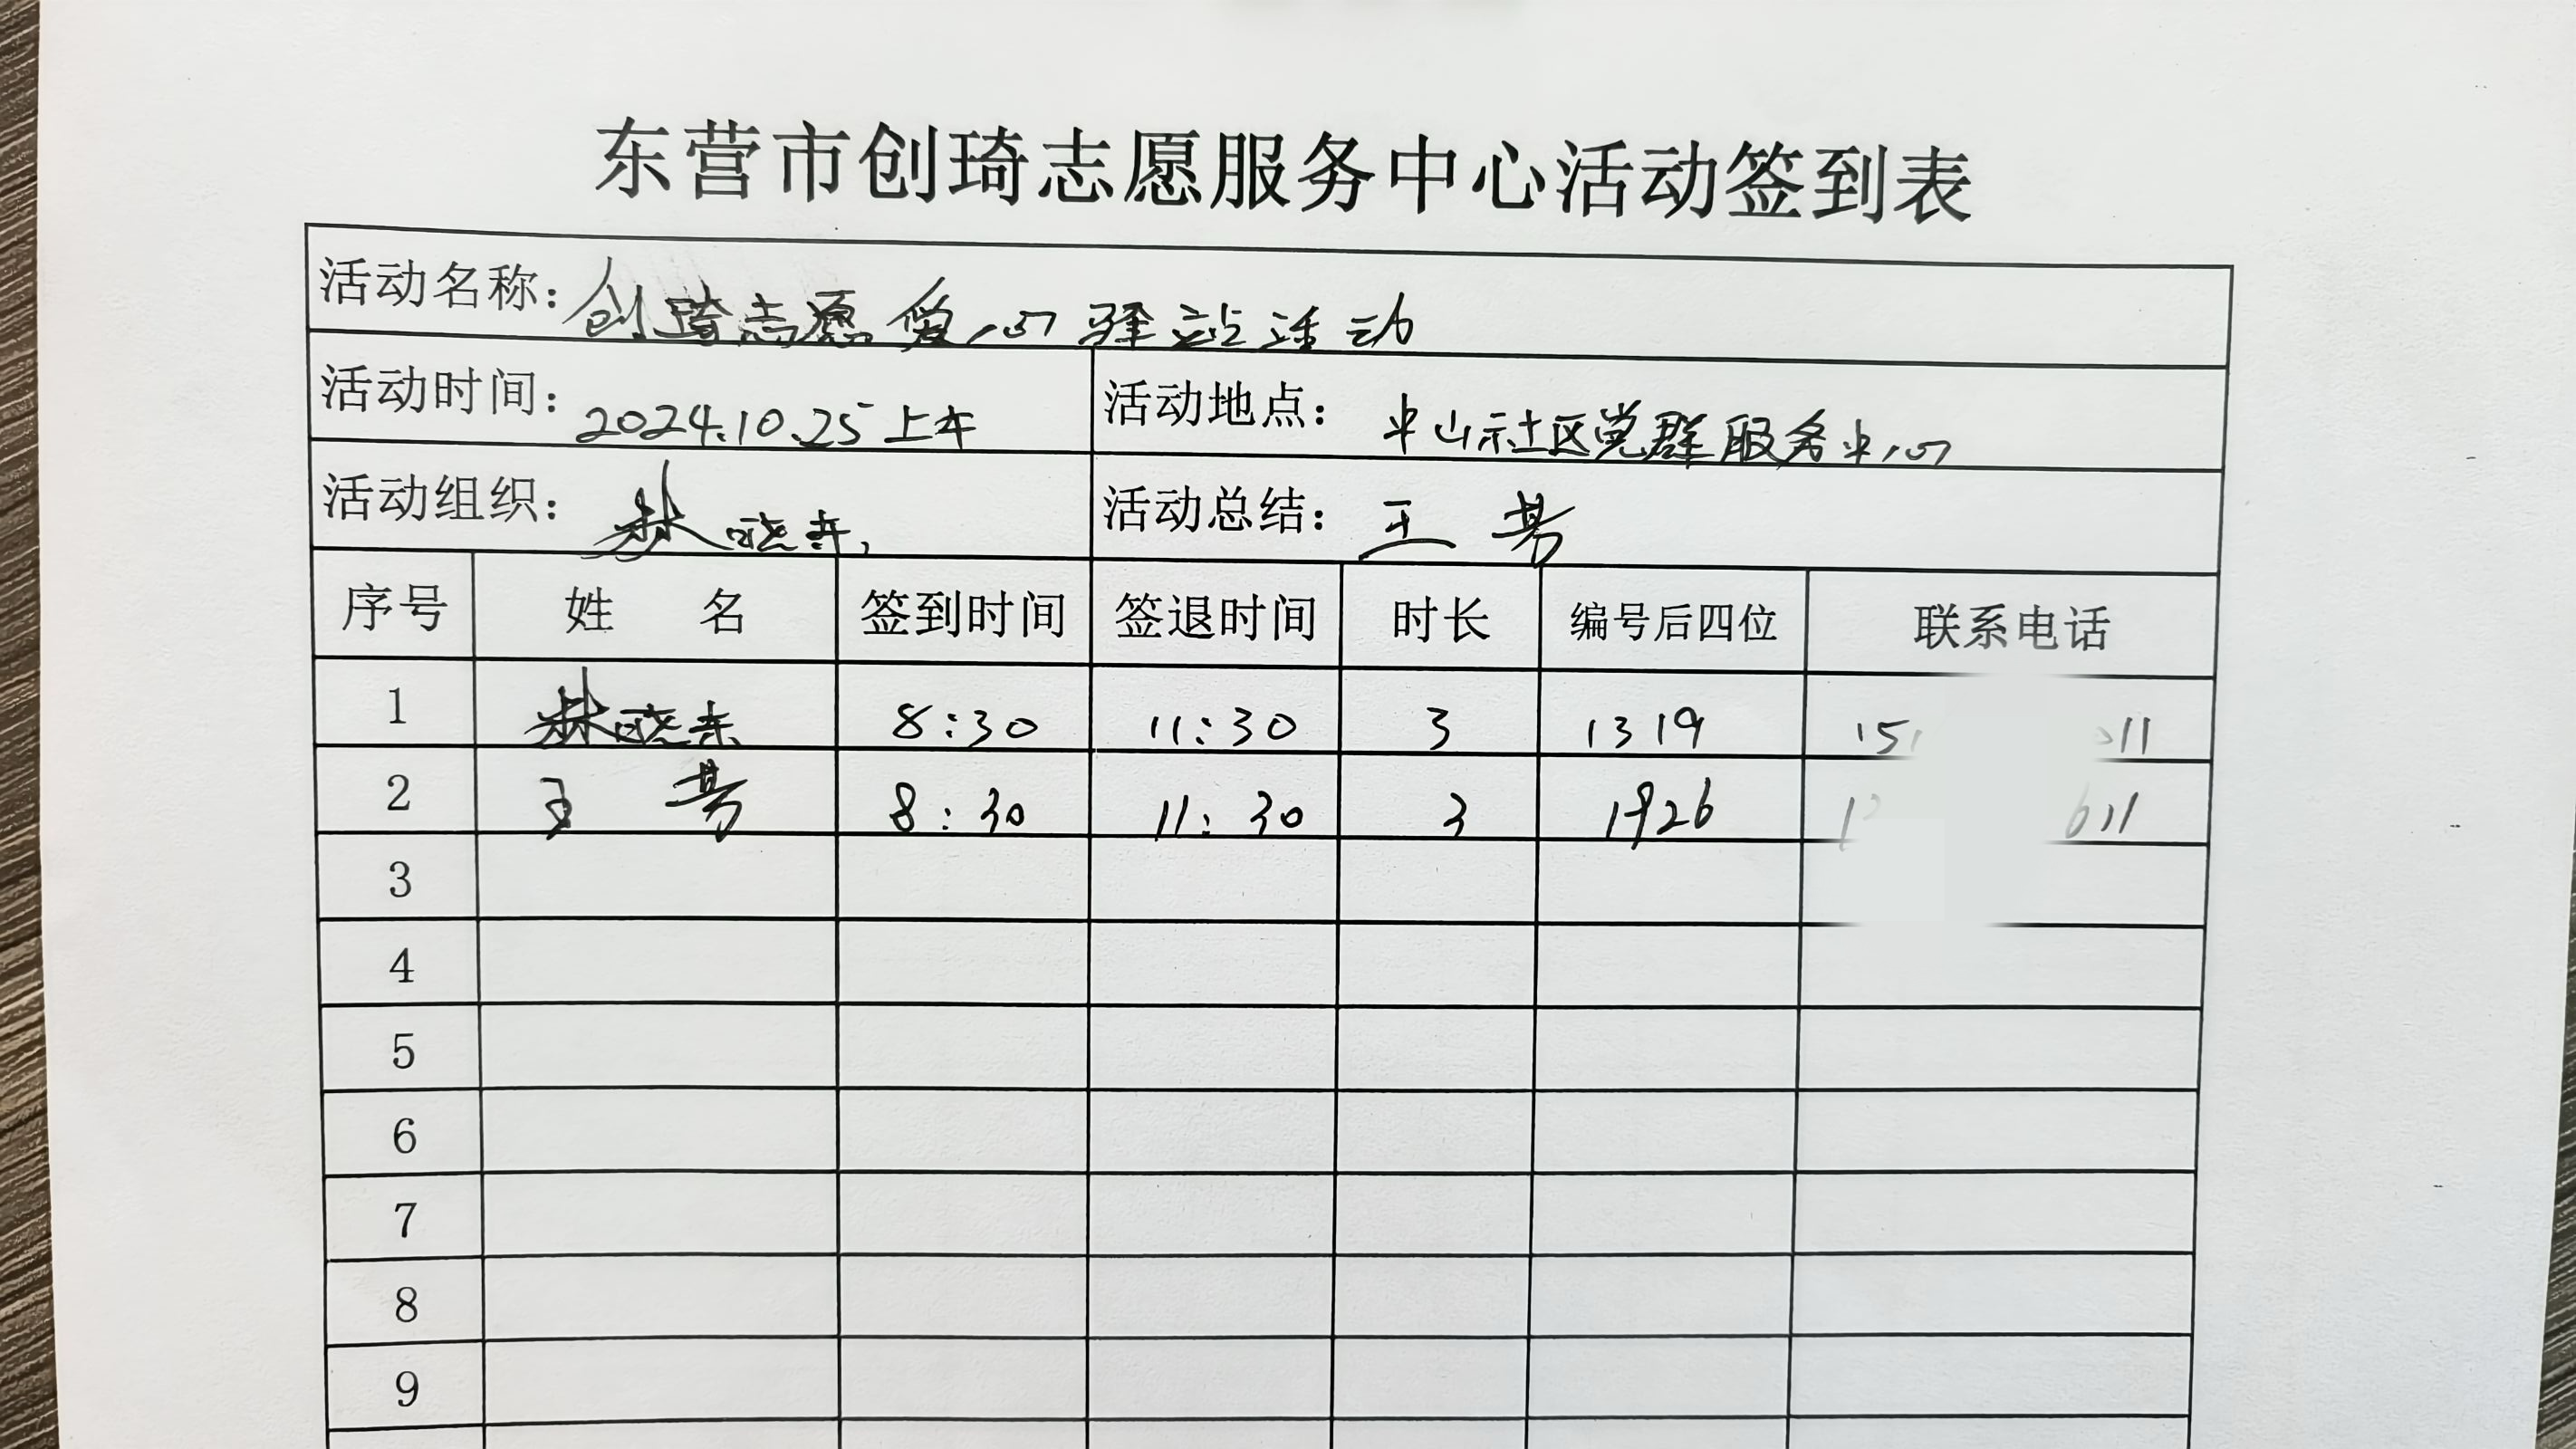 东营市创琦志愿服务中心活动签到表
活动名称：创琦志愿爱心驿站活动
活动时间：2024.10.25上午 活动地点：中山社区党群服务中心
活动组织：林晓东 活动总结：王 芳
序号 姓 名 签到时间 签退时间 时长 编号后四位 联系电话
1 林晓东 8:30 11:30 3 1319 15 11
2 王 芳 8:30 11:30 3 1926 1 611
3
4
5
6
7
8
9